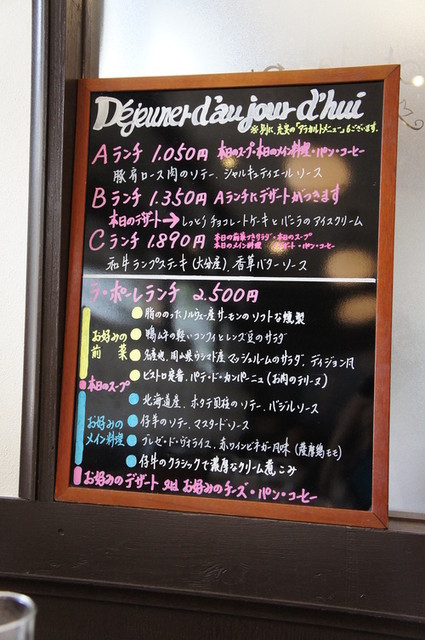 Déjeuner d'au jour d'hui
※別に、充実の「アラカルトメニュー」もございます。
Aランチ 1.050円 本日のスープ・本日のメイン料理・パン・コーヒー
豚肩ロース肉のソテー、シャルキュティエールソース
Bランチ 1.350円 Aランチにデザートがつきます
本日のデザート→しっとりチョコレートケーキとバニラのアイスクリーム
Cランチ 1.890円 本日の前菜・サラダ・本日のスープ
本日のメイン料理 デザート・パン・コーヒー
和牛ランプステーキ(大分産)、香草バターソース
ラ・ポーレランチ 2.500円
お好みの前菜
脂ののったノルウェー産サーモンのソフトな燻製
鴨ムネの軽いコンフィとレンズ豆のサラダ
名産地、岡山県ウシマド産マッシュルームのサラダ、ディジョン風
ビストロ定番、パテ・ド・カンパーニュ(お肉のテリーヌ)
本日のスープ
お好みのメイン料理
北海道産、ホタテ貝柱のソテー、バジルソース
仔羊のソテー、マスタードソース
フレゼ・ド・ヴォライユ、赤ワインビネガー風味(薩摩鶏モモ)
仔牛のクラシックで濃厚なクリーム煮こみ
お好みのデザート 又は お好みのチーズ・パン・コーヒー